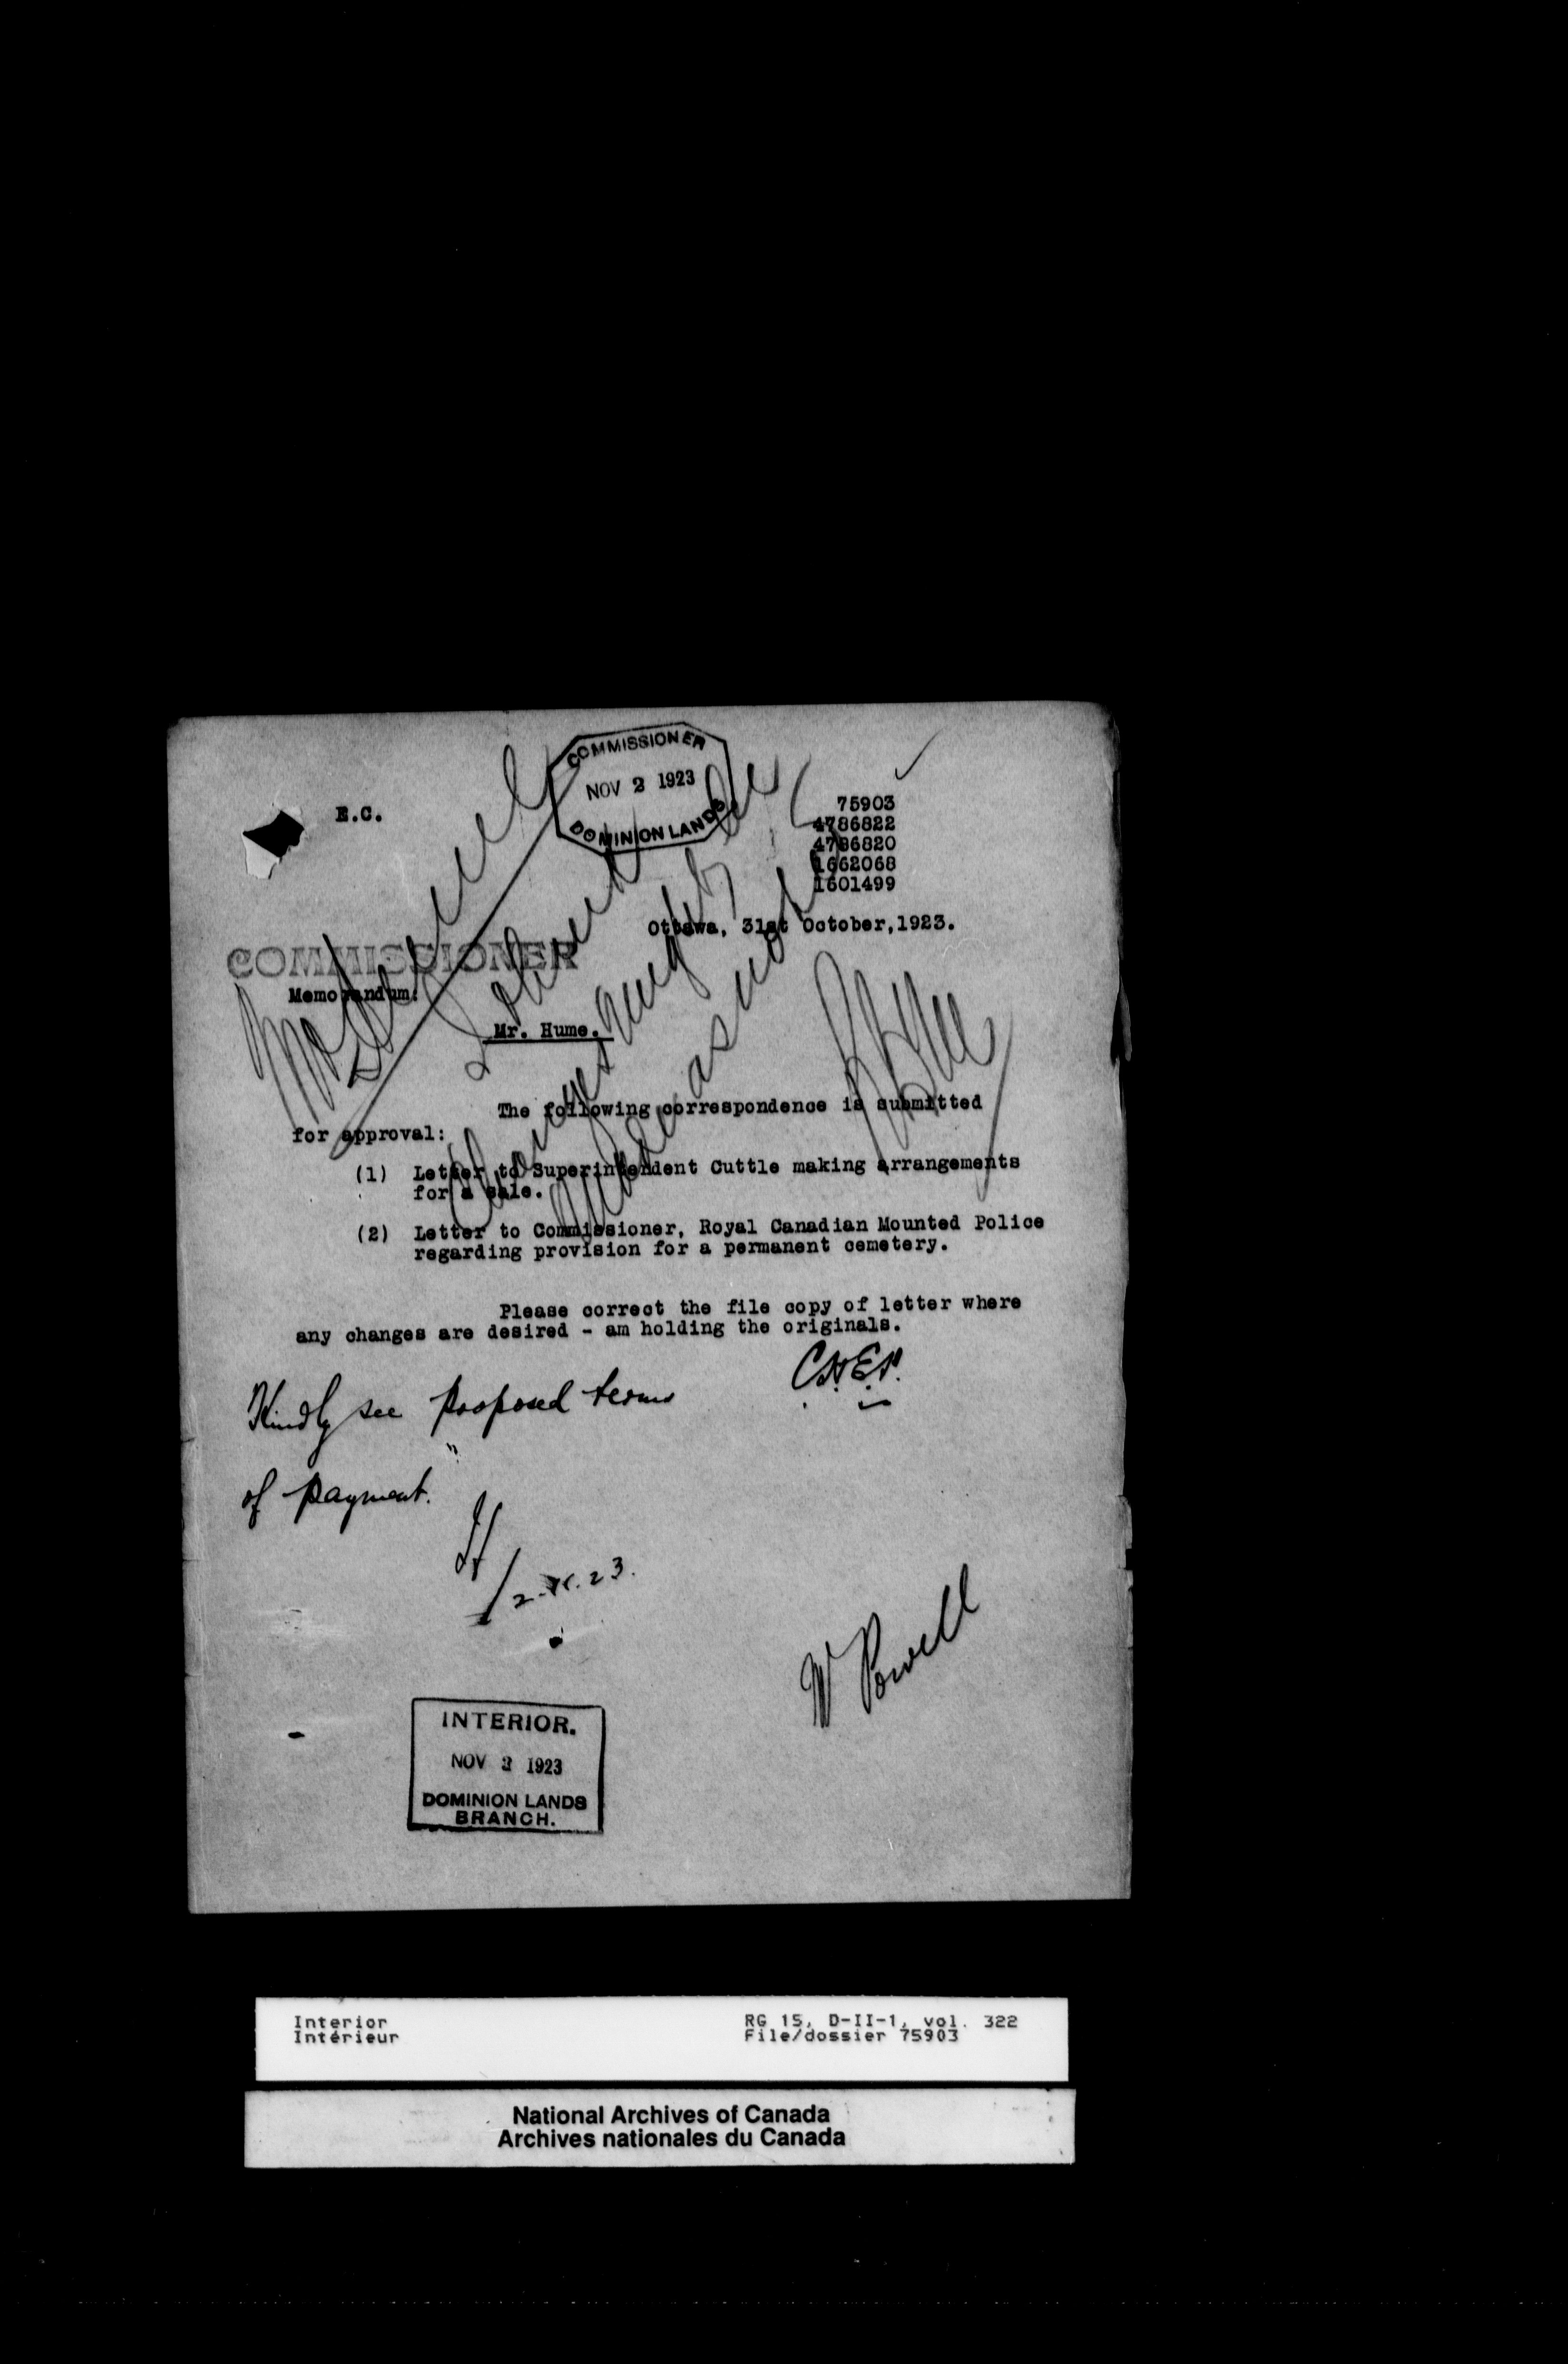 COMMISSIONER
NOV 2 1923
DOMINION LANDS
E.C.
75903
4786822
4786820
1662068
1601499
Ottawa, 31st October, 1923.
COMMISSIONER
Memorandum:
Mr. Hume.
The following correspondence is submitted
for approval:
(1) Letter to Superintendent Cuttle making arrangements
for a sale.
(2) Letter to Commissioner, Royal Canadian Mounted Police
regarding provision for a permanent cemetery.
Please correct the file copy of letter where
any changes are desired - am holding the originals.
Changes might be
made as noted
Kindly see proposed terms
of payment.
2.XI.23.
W Powell
INTERIOR.
NOV 2 1923
DOMINION LANDS
BRANCH.
Interior RG 15, D-II-1, vol. 322
Intérieur File/dossier 75903
National Archives of Canada
Archives nationales du Canada